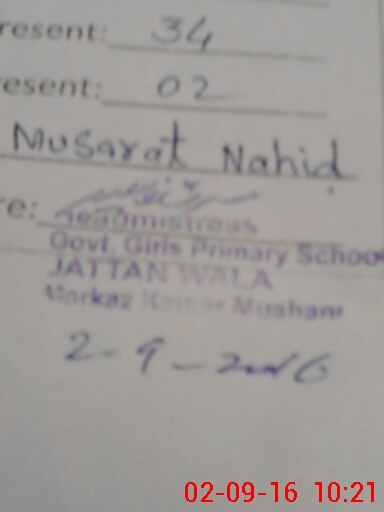 resent: 34
esent: 02
Musarat Nahid
e:
Headmistress
Govt. Girls Primary School
JATTAN WALA
Markaz Kamar Mushani
2-9-2016
02-09-16 10:21